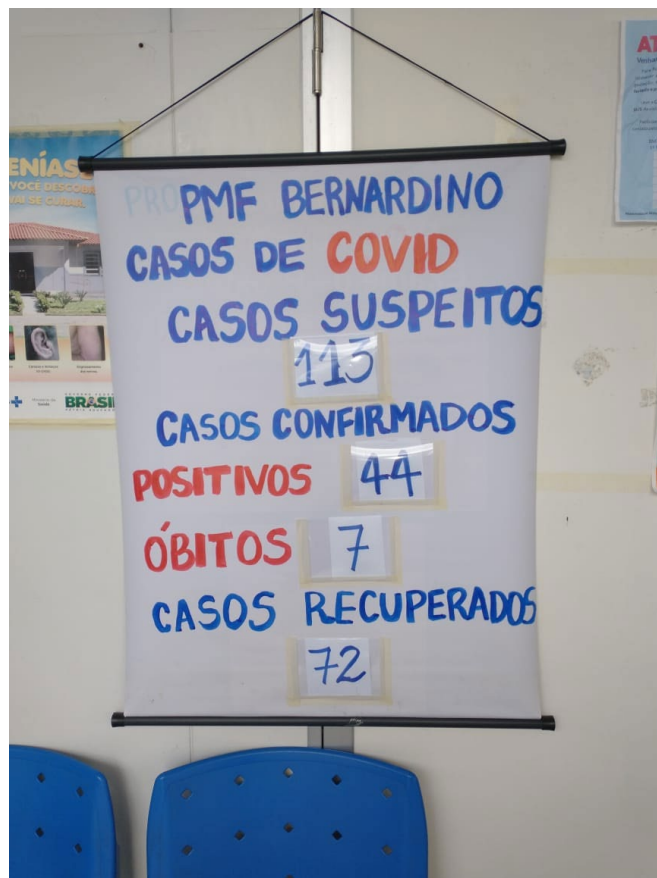 PMF BERNARDINO
CASOS DE COVID
CASOS SUSPEITOS
113
CASOS CONFIRMADOS
POSITIVOS 44
ÓBITOS 7
CASOS RECUPERADOS
72
ENÍAS
VOCÊ DESCOBRE
VAI SE CUIDAR.
BRASI
AT